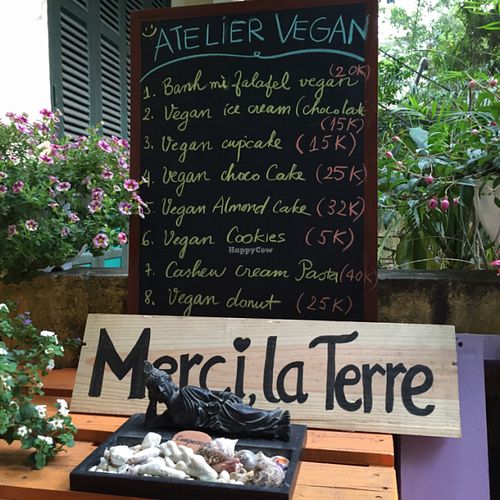 ATELIER VEGAN
1. Banh mi falafel vegan (20K)
2. Vegan ice cream (chocolate
(15K)
3. Vegan cupcake (15K)
4. Vegan choco Cake (25K)
Vegan Almond Cake (32K)
6. Vegan Cookies (5K)
HappyCow
7. Cashew cream Pasta (40K
8. Vegan donut (25K)
Merci, la Terre